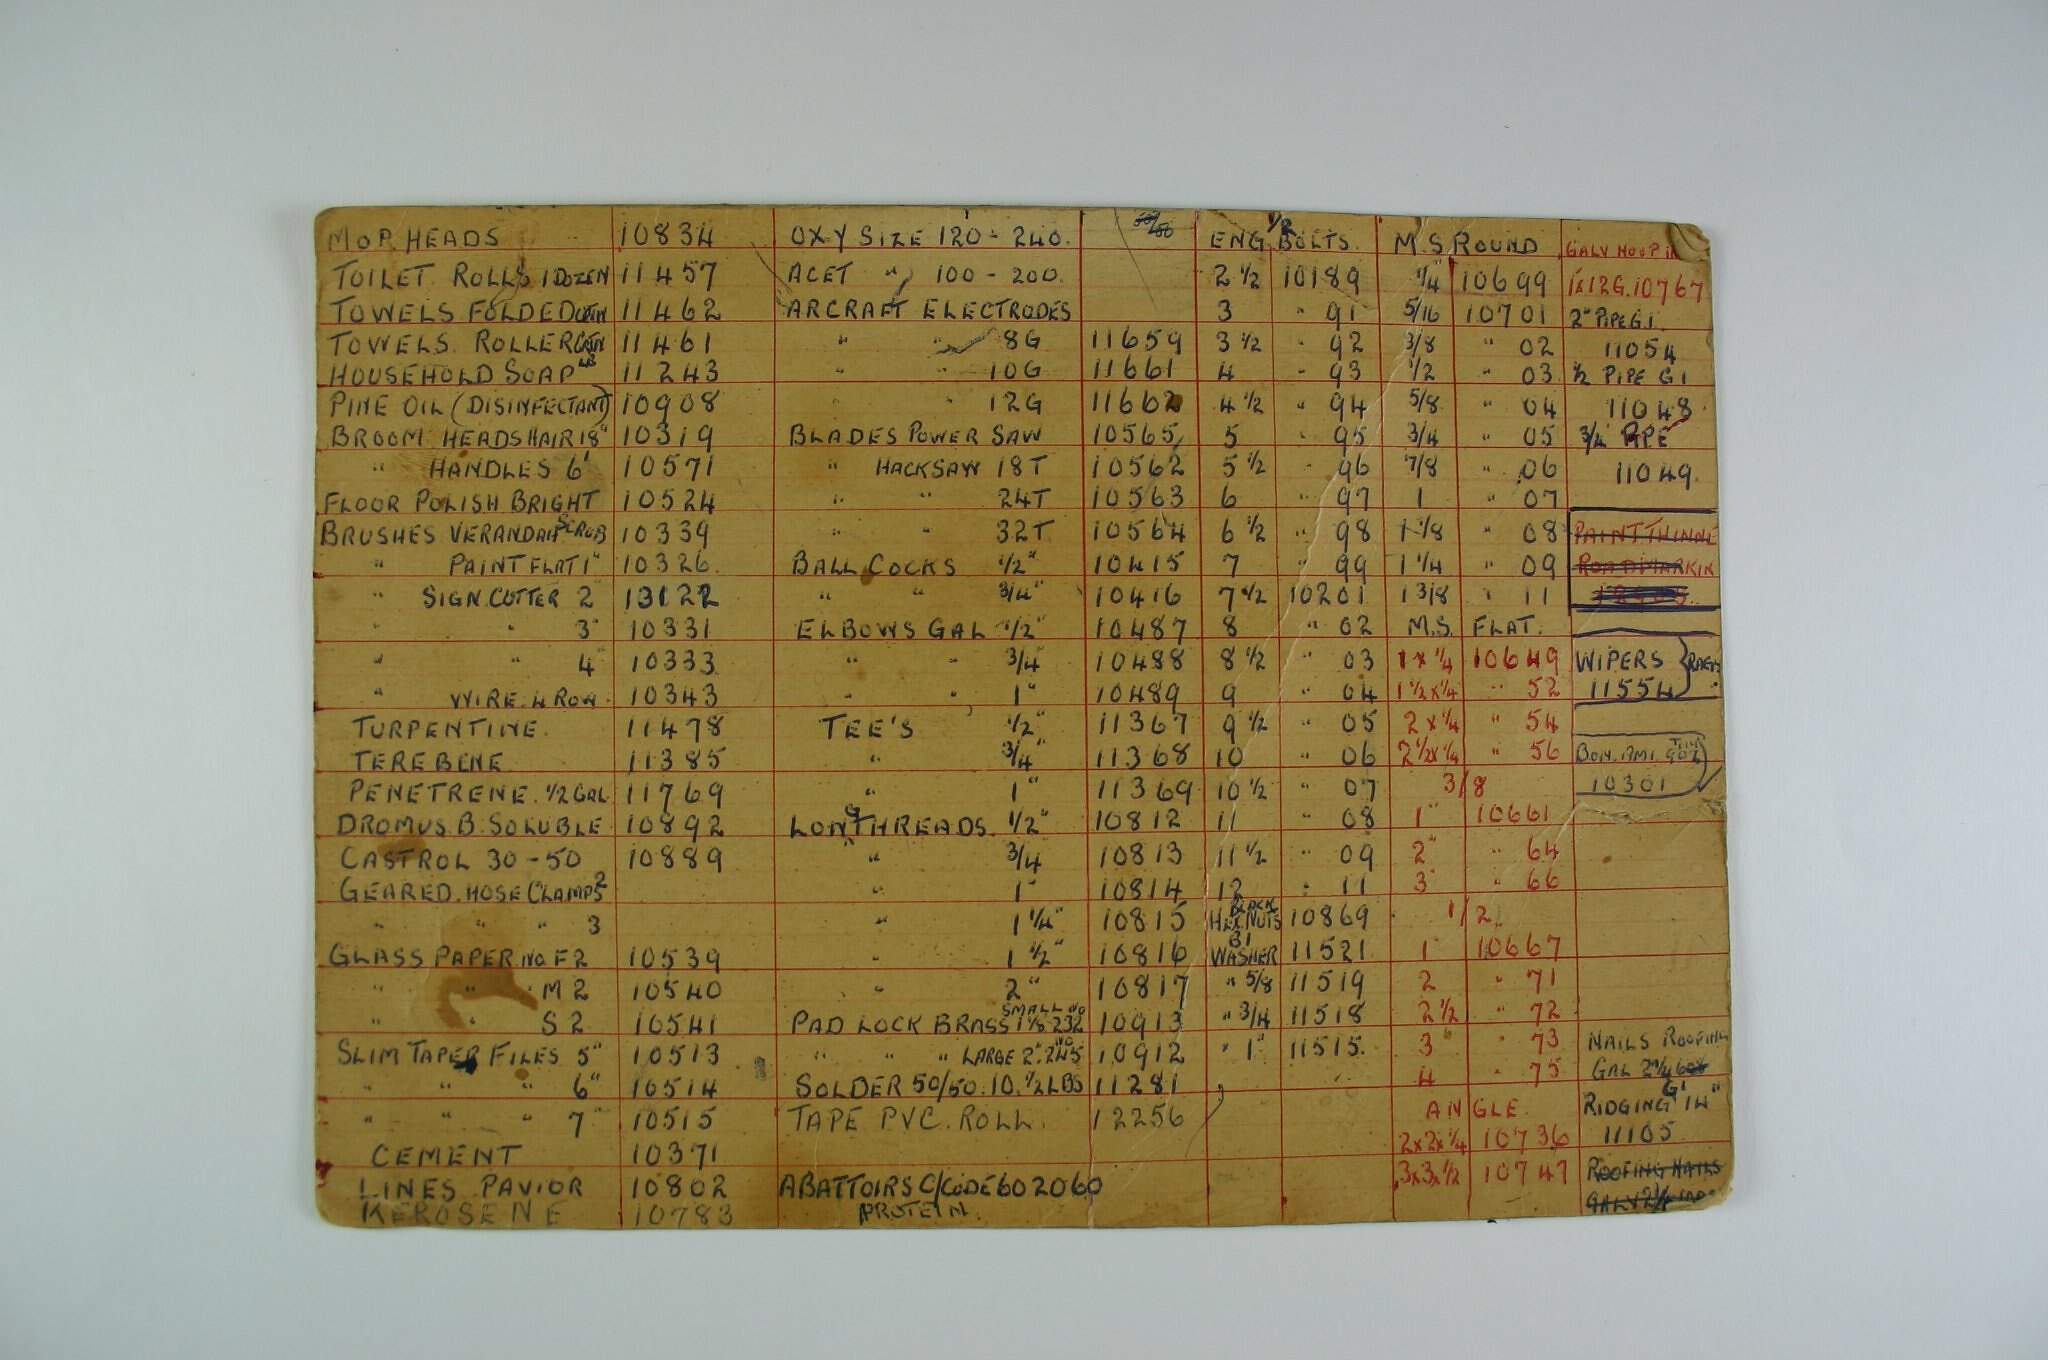 MOP HEADS 10834 OXY SIZE 120-240. ENG 1/2 BOLTS. M.S ROUND GALV HOOP
TOILET ROLLS 1 DOZEN 11457 ACET " 100-200. 2 1/2 10189 1/4" 10699 1x12G.10767
TOWELS FOLDED CRTN 11462 ARCRAFT ELECTRODES 3 " 91 5/16 10701 2" PIPE G.I.
TOWELS ROLLER CRTN 11461 " " 8G 11659 3 1/2 " 92 3/8 " 02 11054
HOUSEHOLD SOAP LB 11243 " " 10G 11661 4 " 93 1/2 " 03 1/2 PIPE G I
PINE OIL (DISINFECTANT) 10908 " " 12G 11662 4 1/2 " 94 5/8 " 04 11048
BROOM HEADS HAIR 18" 10319 BLADES POWER SAW 10565 5 " 95 3/4 " 05 3/4 PIPE
" HANDLES 6' 10571 " HACKSAW 18T 10562 5 1/2 " 96 7/8 " 06 11049.
FLOOR POLISH BRIGHT 10524 " " 24T 10563 6 " 97 1 " 07
BRUSHES VERANDAH SCRUB 10339 " " 32T 10564 6 1/2 " 98 1 1/8 " 08 PAINT THINNE
" PAINT FLAT 1" 10326. BALL COCKS 1/2" 10415 7 " 99 1 1/4 " 09 ROADMARKIN
" SIGN.CUTTER 2" 13122 " " 3/4" 10416 7 1/2 10201 1 3/8 " 11
" " 3" 10331 ELBOWS GAL 1/2" 10487 8 " 02 M.S. FLAT.
" " 4" 10333 " " 3/4" 10488 8 1/2 " 03 1 x 1/4 10649 WIPERS RAGS
" WIRE 4 ROW. 10343 " " 1" 10489 9 " 04 1 1/2 x 1/4 " 52 11554
TURPENTINE. 11478 TEE'S 1/2" 11367 9 1/2 " 05 2 x 1/4 " 54
TEREBENE 11385 " 3/4" 11368 10 " 06 2 1/2 x 1/4 " 56 BON. AMI. 9OZ TINS
PENETRENE. 1/2 GAL 11769 " 1" 11369 10 1/2 " 07 3/8 10301
DROMUS.B.SOLUBLE 10892 LONG THREADS. 1/2" 10812 11 " 08 1" 10661
CASTROL 30-50 10889 " 3/4 10813 11 1/2 " 09 2" " 64
GEARED.HOSE CLAMPS 2 " 1" 10814 12 " 11 3" " 66
" " " 3 " 1 1/4" 10815 BLACK HEX NUTS 10869 1/2
GLASS PAPER NO. F2 10539 " 1 1/2" 10816 BI WASHER 11521 1" 10667
" " " M2 10540 " 2" 10817 " 5/8 11519 2 " 71
" " S2 10541 PAD LOCK BRASS SMALL NO 1 1/8-232 10913 " 3/4 11518 2 1/2 " 72
SLIM TAPER FILES 5" 10513 " " " LARGE 2". NO 245 10912 " 1" 11515. 3 " 73 NAILS ROOFING
" " " 6" 10514 SOLDER 50/50.10.1/2 LBS 11281 4 " 75 GAL 2 1/4
" " " 7" 10515 TAPE PVC.ROLL. 12256 ANGLE. RIDGING GI 14"
CEMENT 10371 2x2x1/4 10736 11105
LINES PAVIOR 10802 ABATTOIRS C/CODE 602060 3x3x1/2 10747 ROOFING NAILS
KEROSENE 10783 PROTEIN. GALV 2 1/4